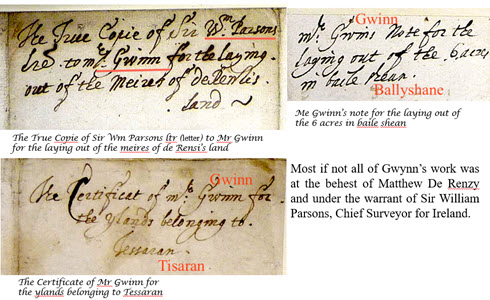 The True Copie of Sir Wm Parsons
tre. to mr. Gwinn for the laying
out of the Meires of de Renzis
land ~
The True Copie of Sir Wm Parsons ltr (letter) to Mr Gwinn
for the laying out of the meires of de Rensi's land
Gwinn
mr. Gwins Note for the
laying out of the 6 acres
in baile shean.
Ballyshane
Me Gwinn's note for the laying out of
the 6 acres in baile shean
Gwinn
The Certificat of mr. Gwinn for
the ylands belonging to
Tessaran.
Tisaran
The Certificate of Mr Gwinn for
the ylands belonging to Tessaran
Most if not all of Gwynn's work was
at the behest of Matthew De Renzy
and under the warrant of Sir William
Parsons, Chief Surveyor for Ireland.